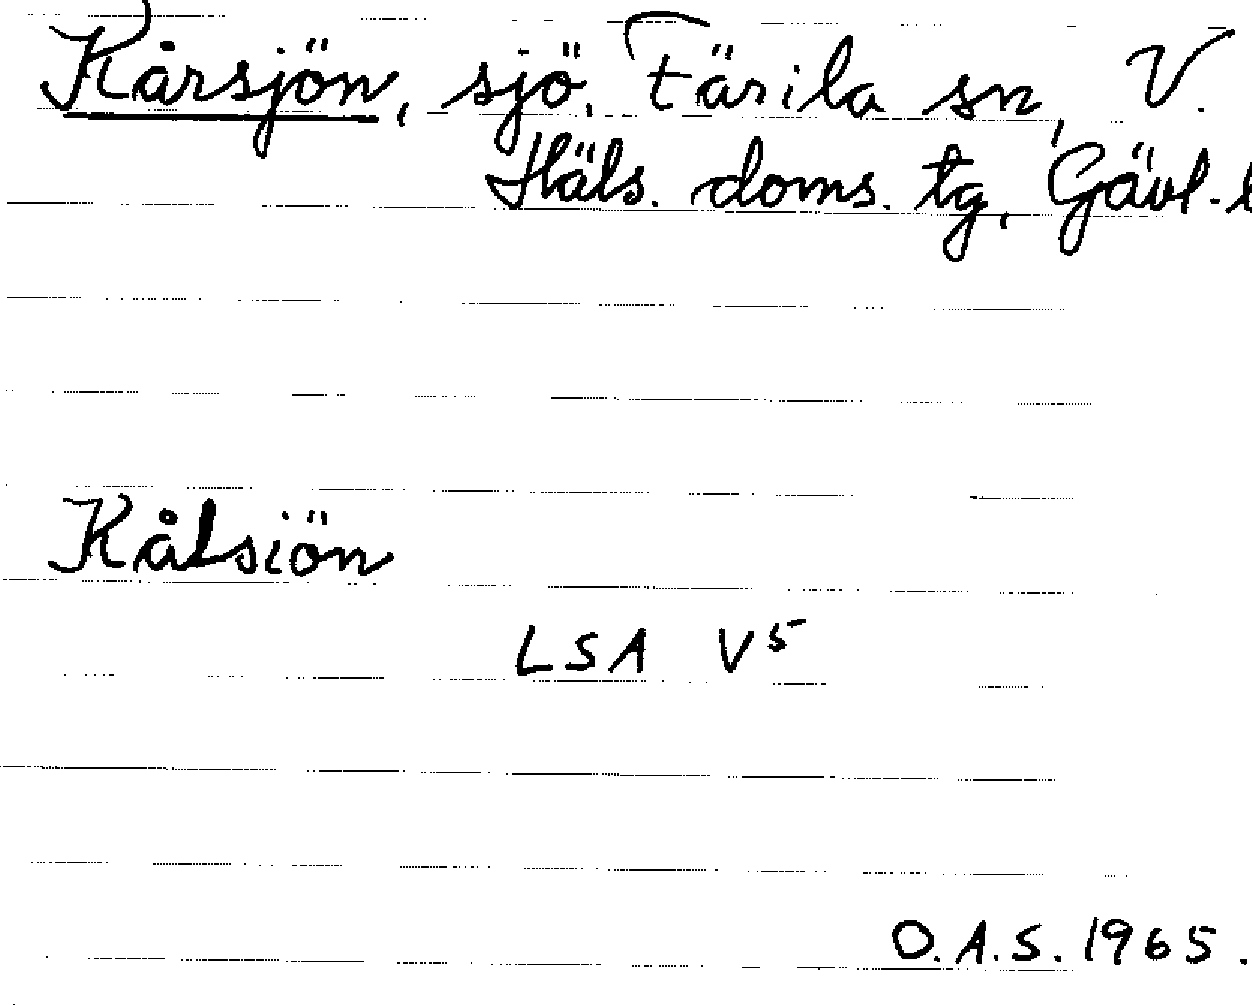 Kårsjön, sjö. Färila sn, V.
Häls. doms. tg, Gävl. l
Kålsiön
LSA V5
O.A.S. 1965.